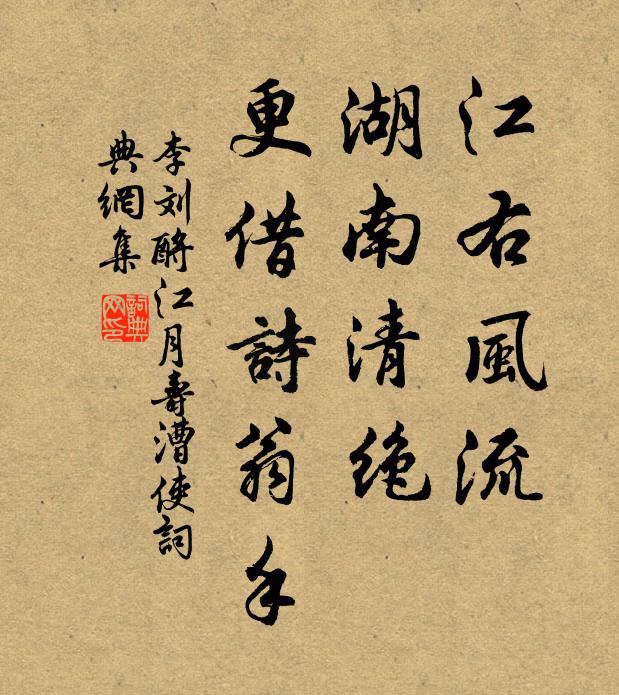 江右風流
湖南清绝
更借詩翁手
李刘酹江月壽漕使詞
典網集
詞典
网印